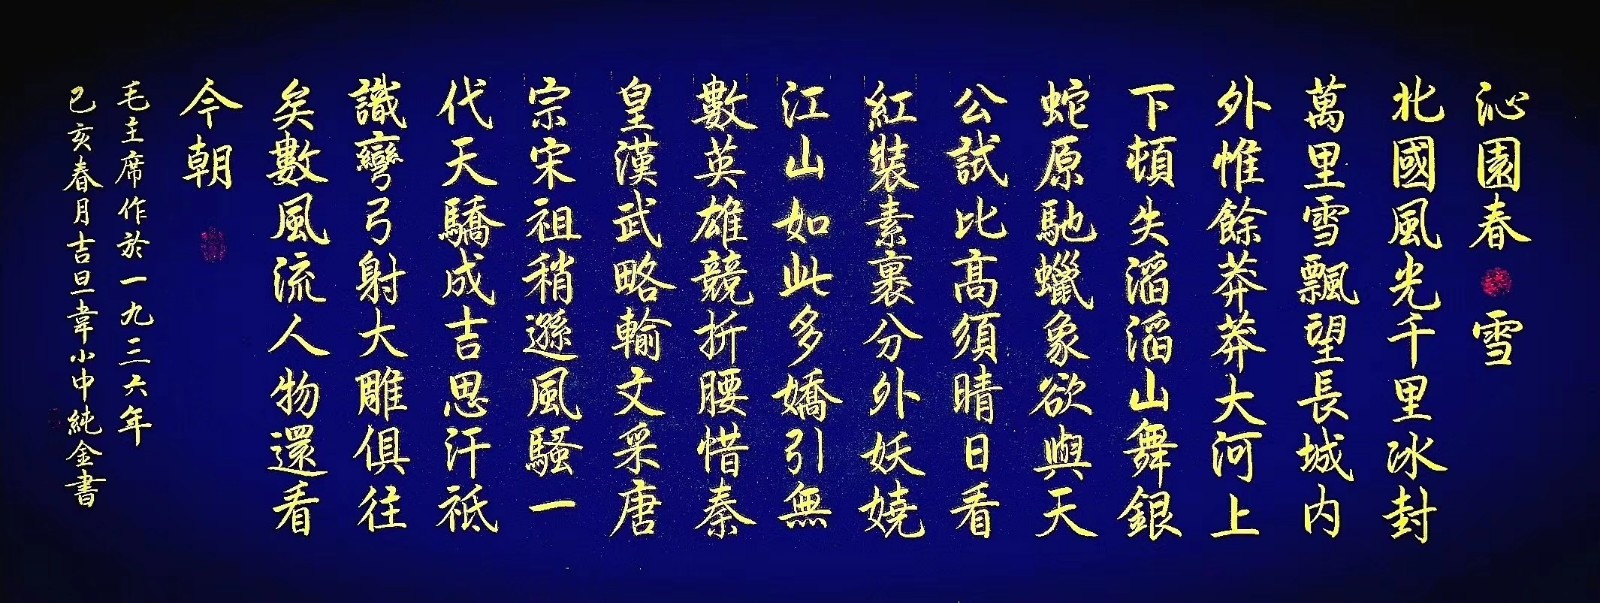 沁園春 雪
北國風光千里冰封
萬里雪飄望長城内
外惟餘莽莽大河上
下頓失滔滔山舞銀
蛇原馳蠟象欲與天
公試比高須晴日看
紅裝素裹分外妖嬈
江山如此多嬌引無
數英雄競折腰惜秦
皇漢武略輸文采唐
宗宋祖稍遜風騷一
代天驕成吉思汗祗
識彎弓射大雕俱往
矣數風流人物還看
今朝
毛主席作於一九三六年
己亥春月吉旦韋小中純金書